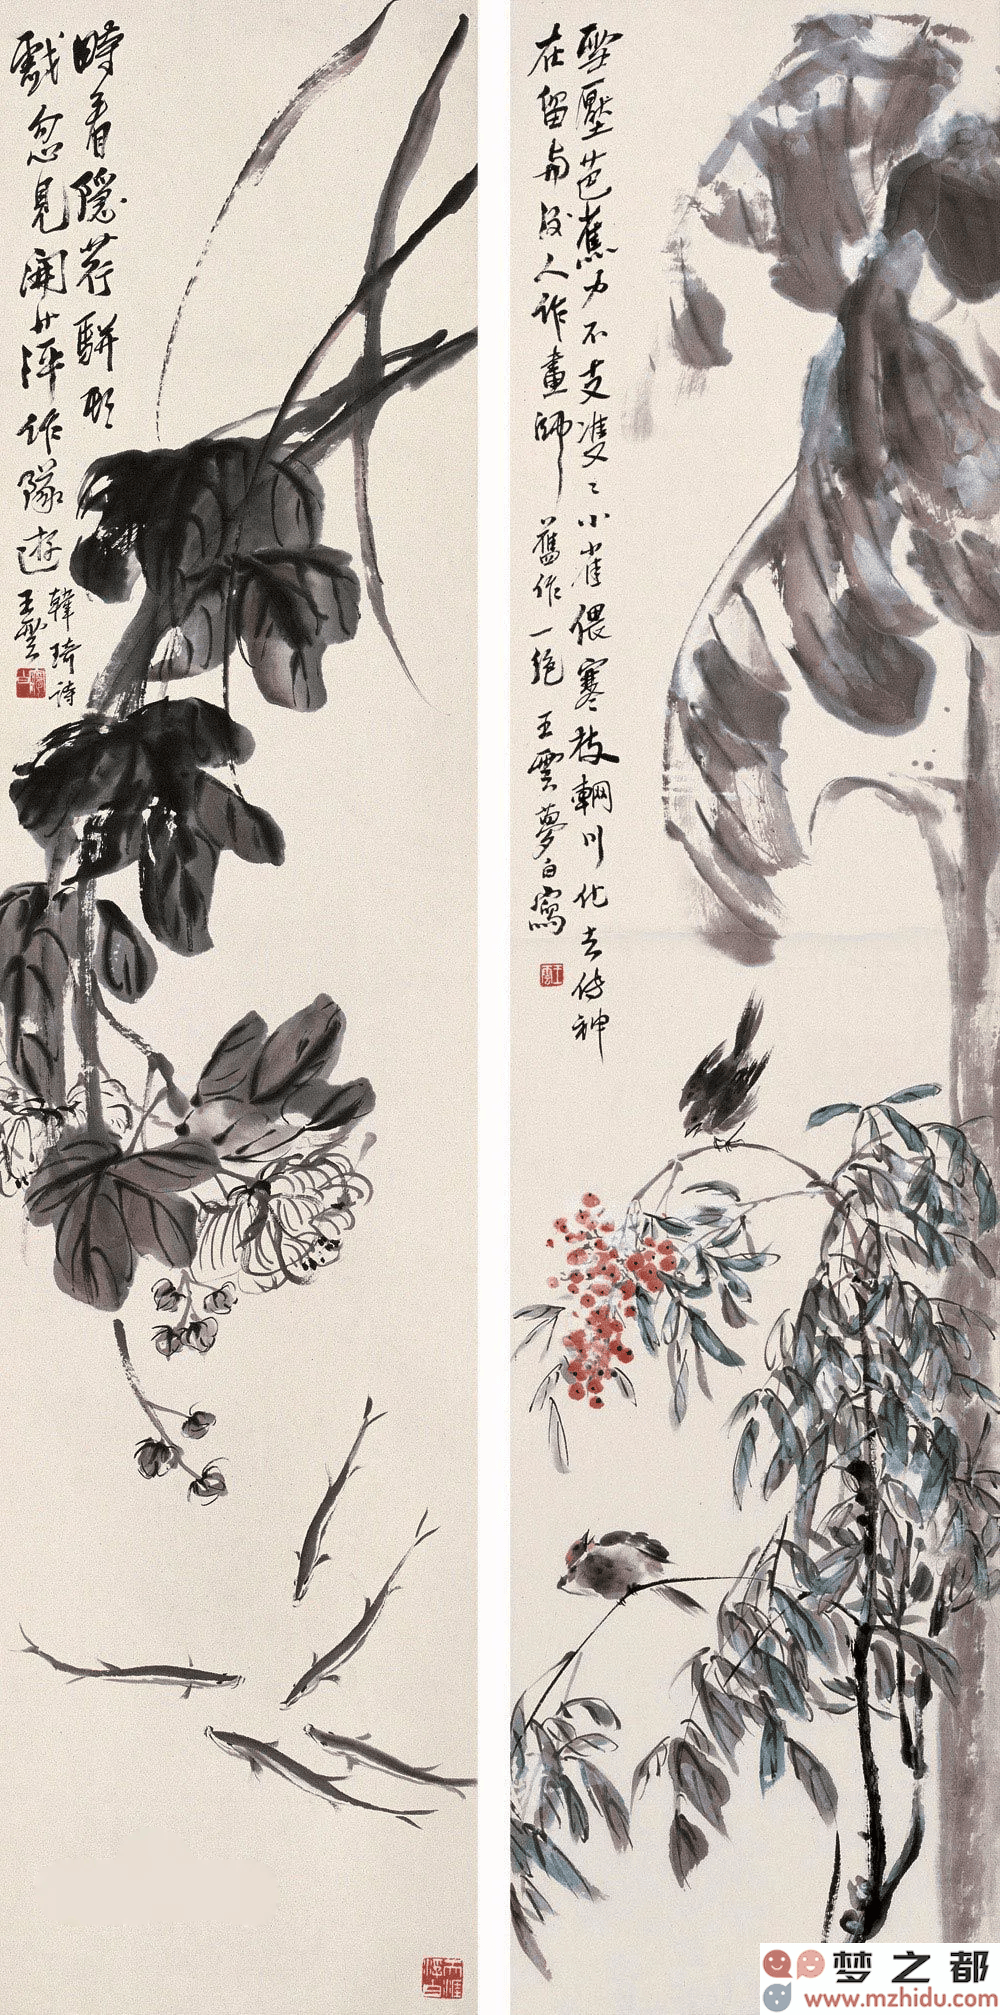 雪壓芭蕉力不支雙〻小雀偎寒枝輞川化去傳神
在留與後人作畫師 舊作一絶 王雲夢白寫
時看隱荇駢頭
戲忽見開萍作隊遊
韓琦詩
王雲
梦之都
www.mzhidu.com